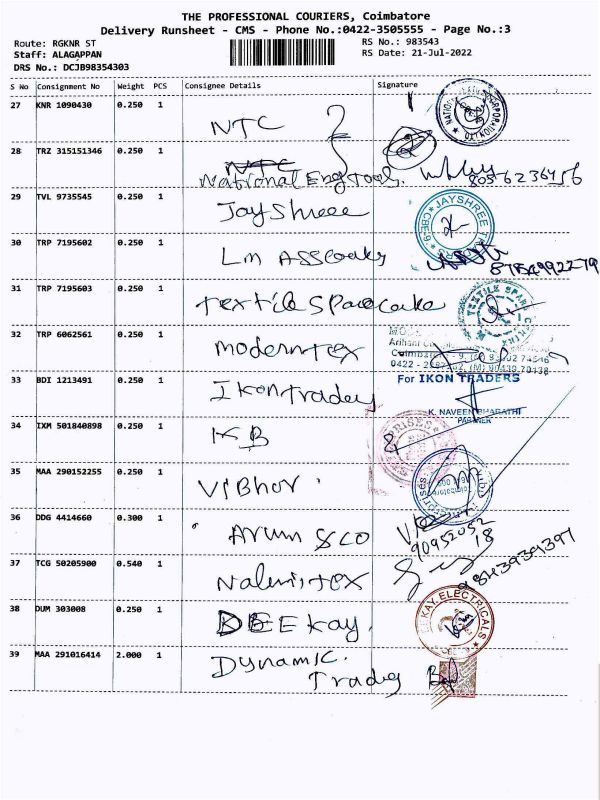 THE PROFESSIONAL COURIERS, Coimbatore
Delivery Runsheet - CMS - Phone No.:0422-3505555 - Page No.:3
Route: RGKNR ST
Staff: ALAGAPPAN
DRS No.: DCJB98354303
RS No.: 983543
RS Date: 21-Jul-2022
S No Consignment No Weight PCS Consignee Details Signature
27 KNR 1090430 0.250 1 NTC
28 TRZ 315151346 0.250 1 NTC
National Eng Tools.
8056236456
29 TVL 9735545 0.250 1 Jayshree
JAYSHREE
CBE-9
30 TRP 7195602 0.250 1 Lm
31 TRP 7195603 0.250 1 Textile
TEXTILE SPARE
32 TRP 6062561 0.250 1 moderntex
33 BDI 1213491 0.250 1 Ikon traders
For IKON TRADERS
K. NAVEEN BHARATHI
PARTNER
34 IXM 501840898 0.250 1 KB
35 MAA 290152255 0.250 1 Vibhor
36 DDG 4414660 0.300 1 Arun & co
90952052
18
37 TCG 50205900 0.540 1
38 DUM 303008 0.250 1 DEE Kay.
KAY ELECTRICALS
39 MAA 291016414 2.000 1 Dynamic.
Traders